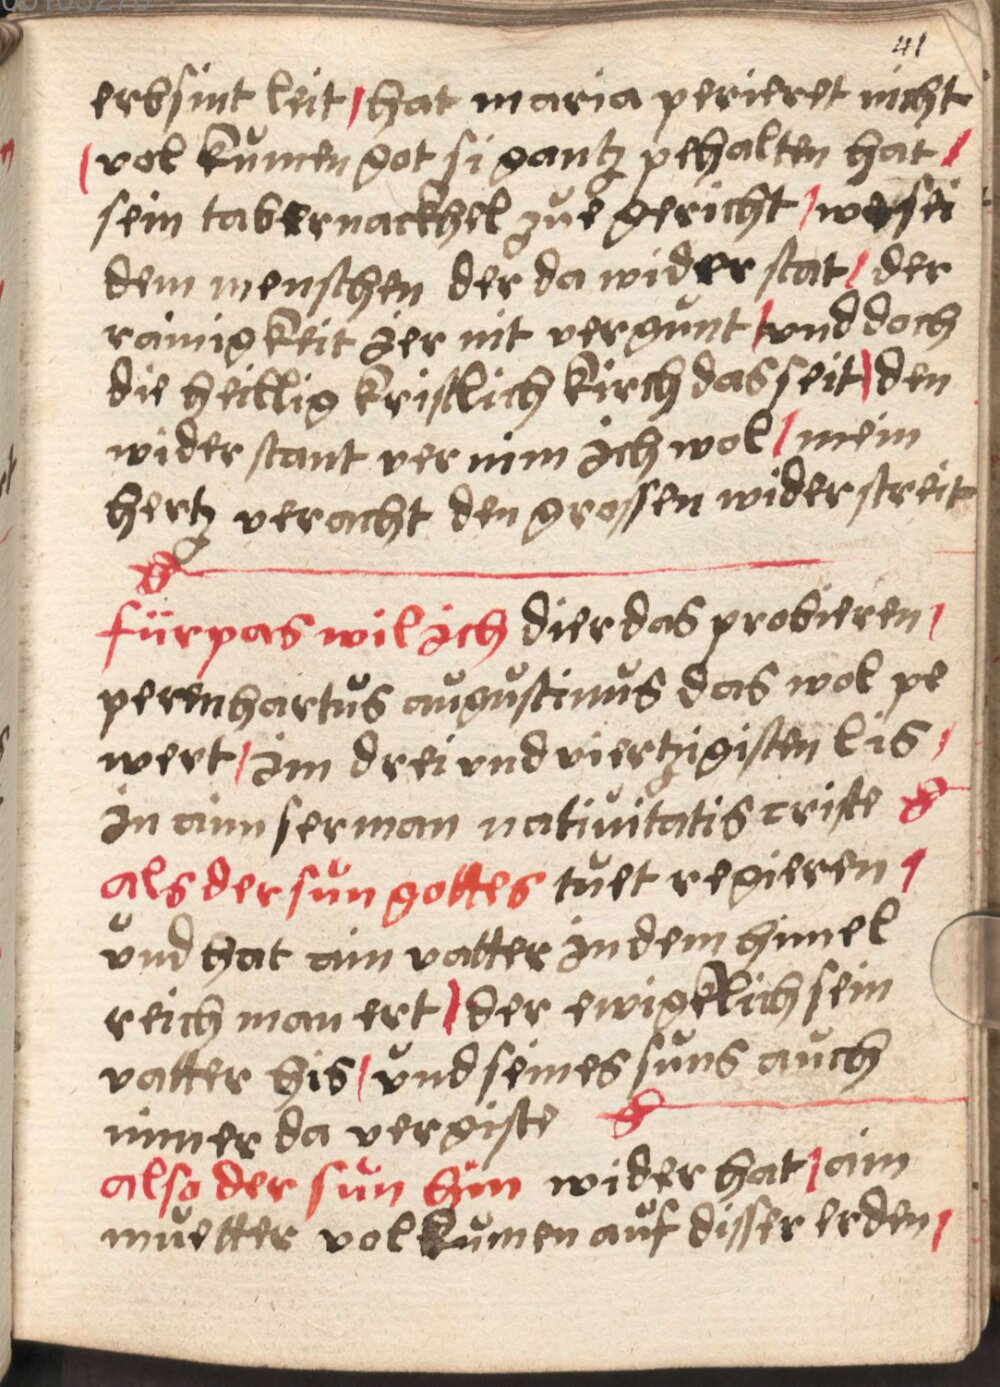 41
erbsint leit / hat maria perieret nicht
/ vol kŭmen got si gantz pehalten hat /
sein tabernackhel zŭe gericht /
dem menschen der da wider stat / der
rainigkeit ier nit vergŭnt / vnd doch
die heillig kristlich kirch das seit / den
wider stant ver nim ich wol / mein
hertz veracht den grossen wider streit
fürpas wil ich dier das probieren /
perenhartŭs aŭgŭstinŭs das wol pe
wert / im drei vnd viertzigisten lis /
in aim serman natiuitatis criste
als der sŭn gottes tŭet regieren /
vnd hat ain vatter in dem himel
reich man ert / der ewigklich sein
vatter his / vnd seines sŭns aŭch
nimer da vergiste
also der sŭn hin wider hat / ain
mŭetter volkŭmen aŭf disser erden /